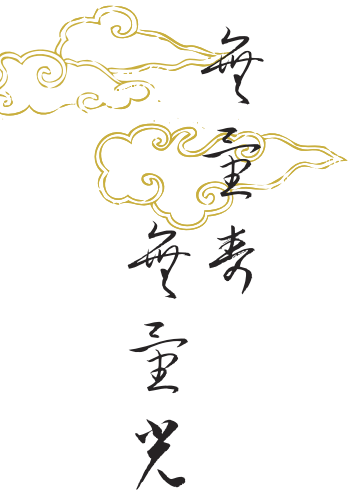 無量寿
無量光